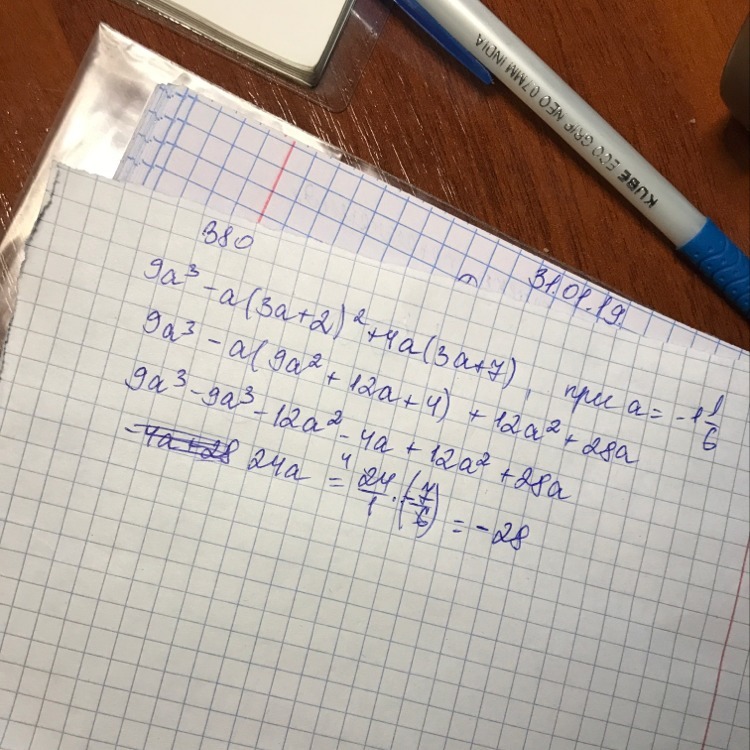 KUBE ECO GRIP NEO 0.7MM INDIA
31.01.19
380
9a³ - a(3a+2)² + 4a(3a+7), при a = -1 1/6
9a³ - a(9a² + 12a + 4) + 12a² + 28a
9a³ - 9a³ - 12a² - 4a + 12a² + 28a
-4a + 28 24a = 24/1 · (-7/6) = -28
4